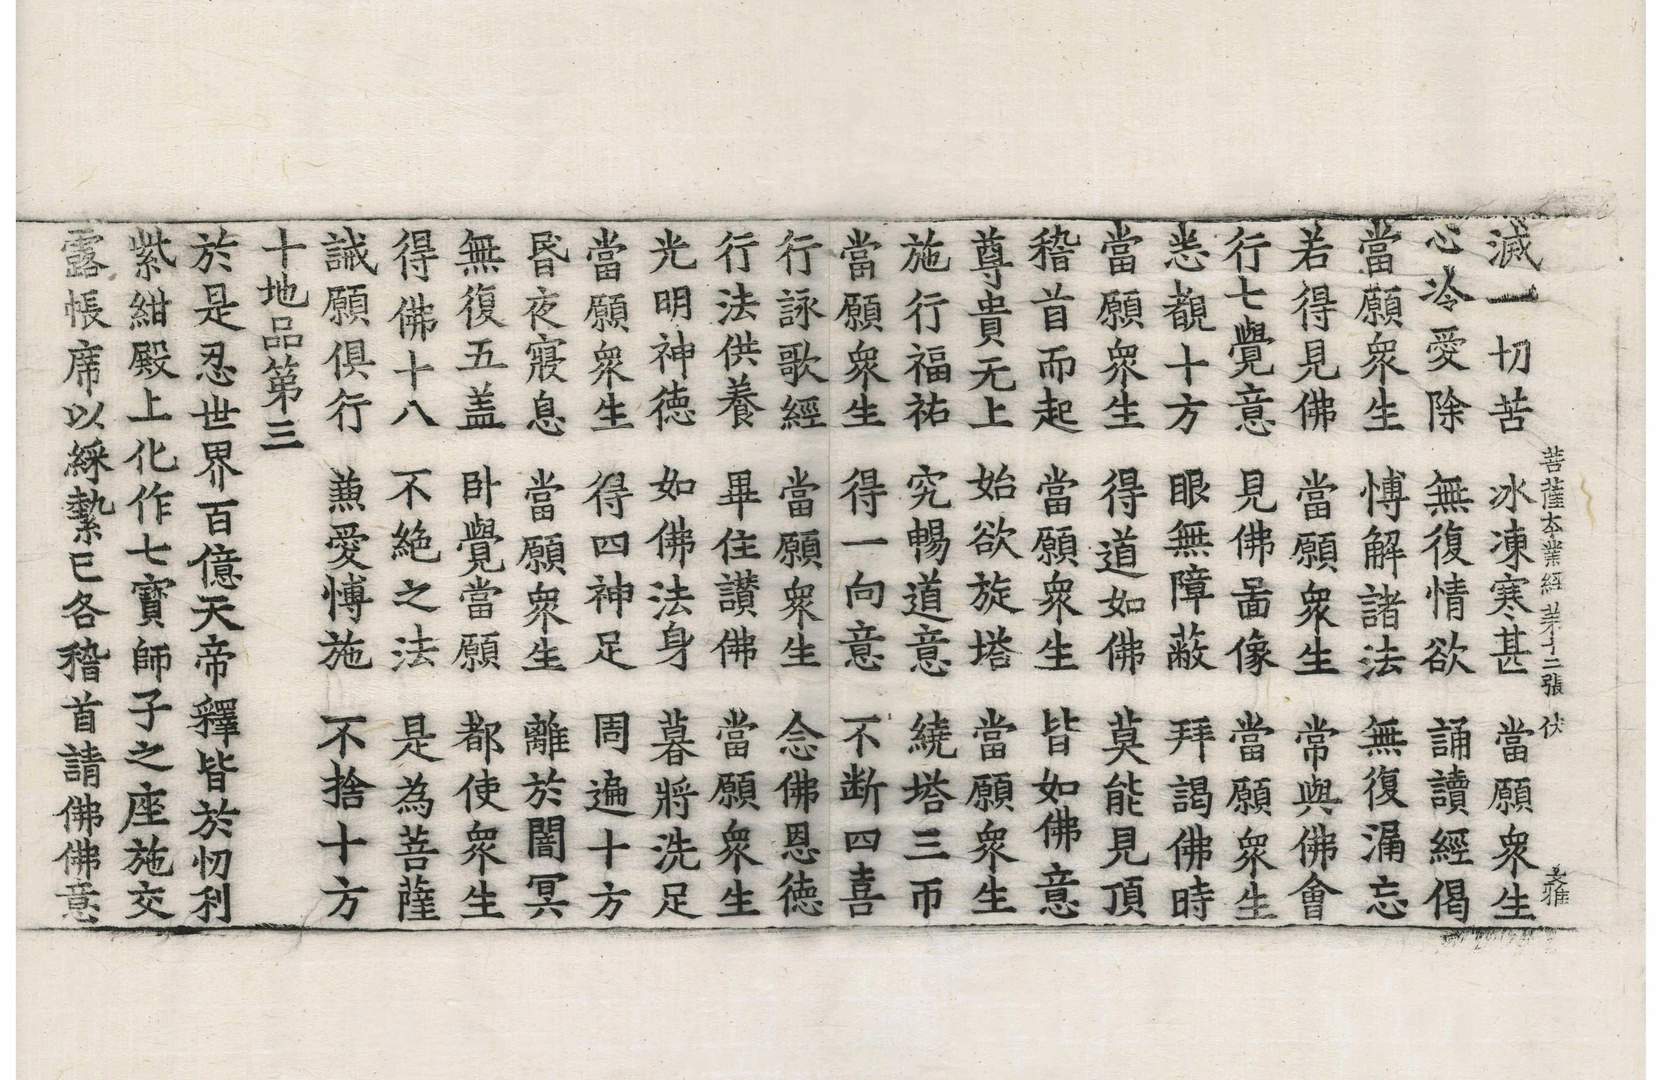 菩薩本業經 第十二張 伏
滅一切苦 氷凍寒甚 當願衆生
心冷愛除 無復情欲 誦讀經偈
當願衆生 愽解諸法 無復漏忘
若得見佛 當願衆生 常與佛會
行七覺意 見佛啚像 當願衆生
悉覩十方 眼無障蔽 拜謁佛時
當願衆生 得道如佛 莫能見頂
稽首而起 當願衆生 皆如佛意
尊貴无上 始欲旋塔 當願衆生
施行福祐 究暢道意 繞塔三帀
當願衆生 得一向意 不断四喜
行詠歌經 當願衆生 念佛恩德
行法供養 畢住讃佛 當願衆生
光明神徳 如佛法身 暮將洗足
當願衆生 得四神足 周遍十方
昏夜寢息 當願衆生 離於闇冥
無復五盖 卧覺當願 都使衆生
得佛十八 不絶之法 是為菩薩
誡願俱行 兼愛愽施 不捨十方
十地品第三
於是忍世界百億天帝釋皆於忉利
紫紺殿上化作七寶師子之座施交
露帳席以綵縶已各稽首請佛佛意